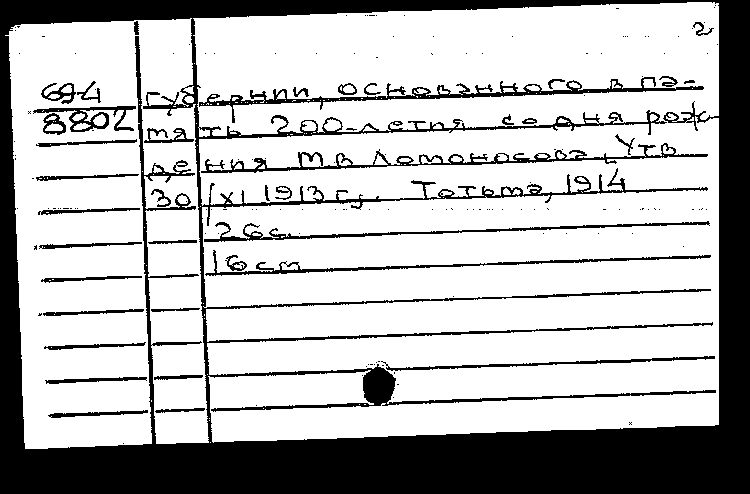 2
69-4 губернии, основанного в па-
8802 мять 200-летия со дня рож-
дения М.В Ломоносова, Утв
30/XI 1913 г,. Тотьма, 1914
26с.
16см